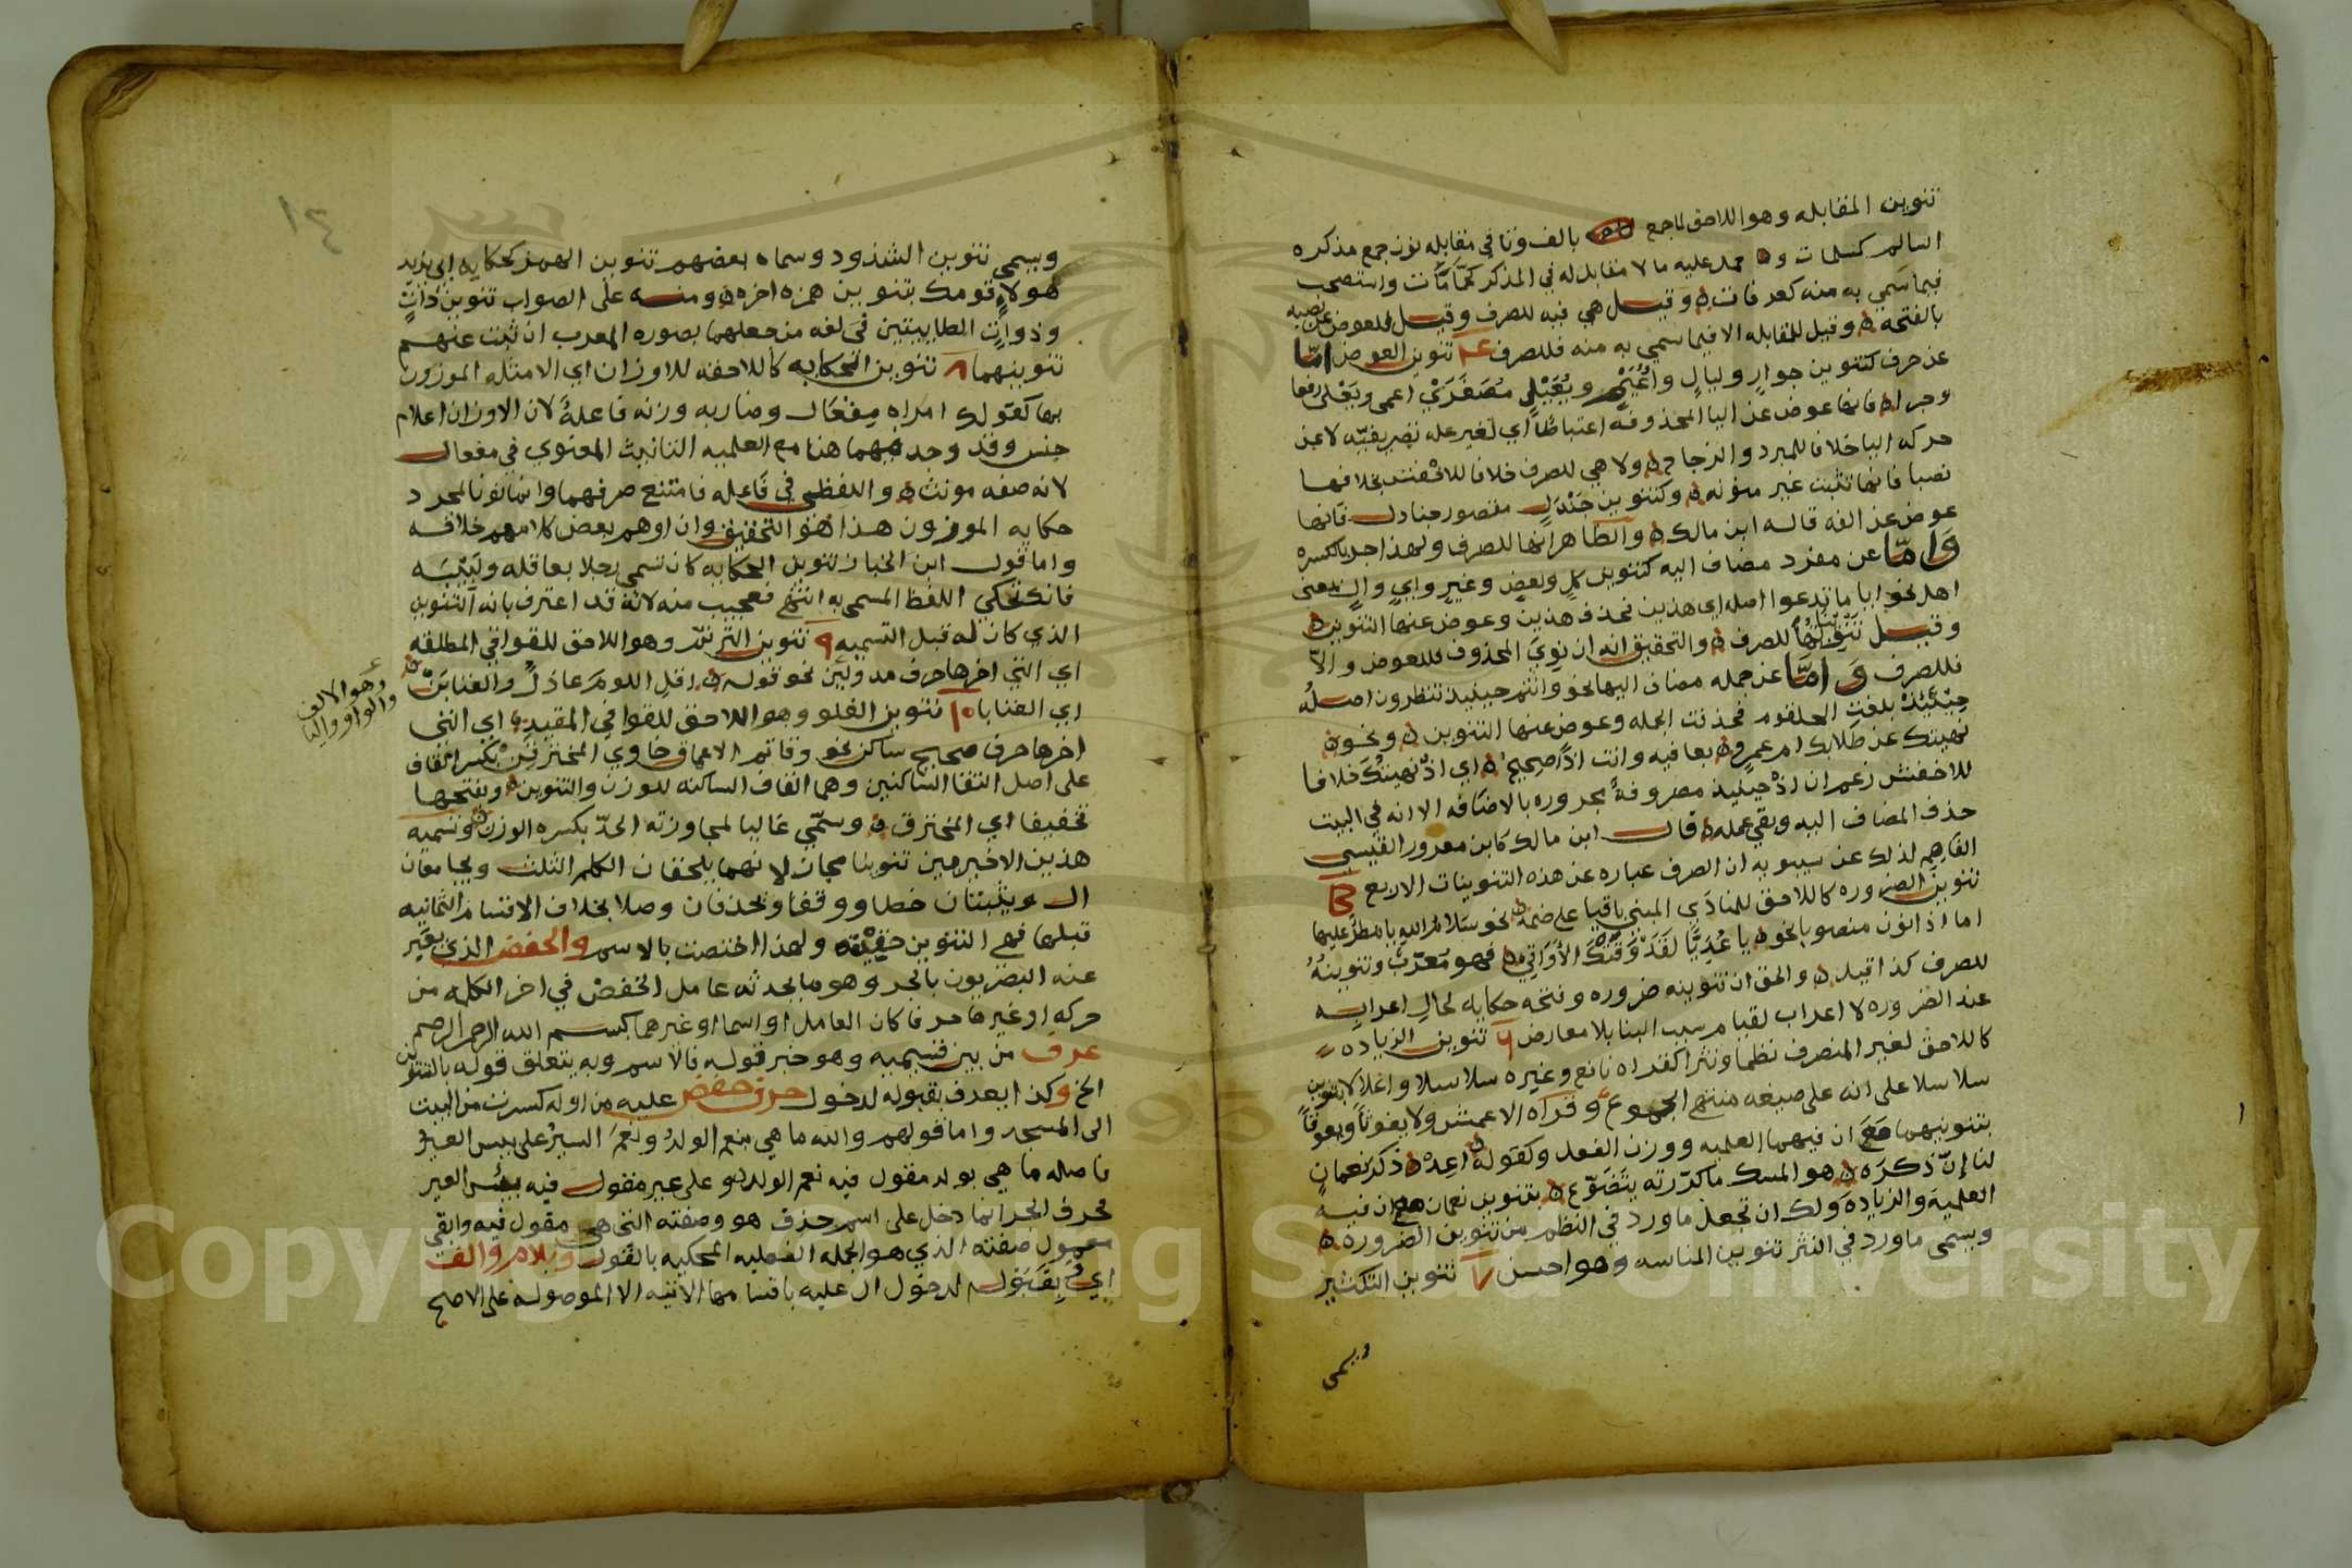 تنوين المقابله وهو اللاحق لما جمع بالف وتا في مقابله نون جمع مذكره
السالم كمسلمات و حمل عليه ما لا مقابل له في المذكر كحمامات واستصحب
فيما سمي به منه كعرفات وقيل هي فيه للصرف وقيل للعوض عن نصبه
بالفتحه وقيل للمقابله الا فيما سمي به منه فللصرف ٤ تنوين العوض امّا
عن حرف كتنوين جوارٍ وليالٍ واُعَيْمٍ ويُعَيْلٍ مُصَغَّرَيْ اعمى ويَعْلى رفعا
وجرا فانها عوض عن اليا المحذوفه اعتباطًا اي لغير عله تصريفيّه لا عن
حركه اليا خلافا للمبرد والزجاج ولا هي للصرف خلافا للاخفش بخلافها
نصبا فانها تثبت غير منونه وكتنوين جَنْدَلٍ مقصور جنادل فانها
عوض عن الفه قاله ابن مالك والظاهر انها للصرف ولهذا جر بالكسره
وَامّا عن مفرد مضاف اليه كتنوين كلٍ وبعضٍ وغيرٍ وايٍ والٍ بمعنى
اهل نحو ايا ما تدعوا اصله اي هذين فحذف هذين وعوض عنها التنوين
وقيل للصرف والتحقيق انه ان نوي المحذوف فللعوض والّا
فللصرف وَامّا عن جمله مضاف اليها نحو وانتم حينيذ تنظرون اصلُه
حِيْنَئِذْ بلغت الحلقوم فحذفت الجمله وعوض عنها التنوين ونحو
نهيتك عن طلابك ام عمرو بعافيه وانت اذًا صحيحُ اي اذْ نهيتُكَ خلافا
للاخفش زعم ان اذْ حينيذ مصروفةٌ مجروره بالاضافه الا انه في البيت
حذف المضاف اليه وبقي عمله قال ابن مالك كابن معزوز القيسي
الفَاهِمِ لذلك عن سيبويه ان الصرف عباره عن هذه التنوينات الاربع
تنوين الضروره كاللاحق للمنادَي المبني باقيا على ضمه نحو سلام الله يا مطرٌ عليها
اما اذا نون منصوبا نحو يا عُدَيًّا لقَدْ وَقَتْكَ الأَوَاقِي فهو مُعرَبٌ وتنوينُهُ
للصرف كذا قيل والحق ان تنوينه ضروره وفتحه حكايه لحالِ اعرابِه
عند الضروره لا اعراب لقيام سبب البنا بلا معارض ٦ تنوين الزياده
كاللاحق لغير المنصرف نظما ونثرا كقراه نافع وغيره سلاسلا واغلالا بتنوين
سلاسلا على انه على صيغه منتهى الجموع وقراه الاعمش ولا يغوثًا ويعوقًا
بتنوينهما مَعَ ان فيهما العلميه ووزن الفعل وكقوله اعدْ ذكر نعمانٍ
لنا إنّ ذكرَه هو المسك ما كررته يتَضَوّع بتنوين نعمان مع ان فيه
العلميهَ والزياده وَلك ان تجعل ما ورد في النظم من تنوين الضروره
ويسمى ما ورد في النثر تنوين المناسبه وهو احسن ٧ تنوين التكثير
ويسمى
١٤
ويسمى تنوين الشذوذ وسماه بعضهم تنوين الهمز كحكايه ابي زيد
هولاءٍ قومك بتنوين همزه اخره ومنه على الصواب تنوين ذاتٍ
وذواتٍ الطاييتين في لغه من جعلهما بصوره المعرب ان ثبت عنهم
تنوينهما ٨ تنوين الحكايه كاللاحقه للاوزان اي الامثله الموزون
بها كقولك امراه مِفعَال وضاربه وزنه فاعلةٌ لان الاوزان اعلام
جنس وقد وجد فيهما هنا مع العلميه التانيث المعنوي في مفعال
لانه صفه مونث واللفظي في فَاعِله فامتنع صرفهما وانما نونا لمجرد
حكايه الموزون هذا هو التحقيق وان اوهم بعض كلامهم خلافه
واما قول ابن الخباز تنوين الحكايه كان تسمي رجلا بعاقله ولَبِيْبَه
فانك تحكي اللفظ المسمى به انتهى فعجيب منه لانه قد اعترف بانه التنوين
الذي كان له قبل التسميه ٩ تنوين الترنّم وهو اللاحق للقوافي المطلقه
اي التي اخرها حرف مد وليْن نحو قوله اقل اللومَ عاذلَ والعتابنْ
وهو الالف
والواو واليا
اي العتابا ١٠ تنوين الغلو وهو اللاحق للقوافي المقيده اي التي
اخرها حرف صحيح ساكن نحو وقاتم الاعماق خاوي المخترقِنْ بكسر القاف
على اصل التقا الساكنين وهما القاف الساكنه للوزن والتنوين وبفتحها
تخفيفا اي المخترق وسمّي غاليا لمجاوزته الحدّ بكسره الوزن وتسميه
هذين الاخيرين تنوينا مجاز لانهما يلحقان الكلم الثلث ويجامعان
ال ويثبتان خطا ووقفا ويحذفان وصلا بخلاف الاقسام الثمانيه
قبلها فهي التنوين حقيقه ولهذا اختصت بالاسم والخفض الذي يعبر
عنه البصريون بالجر وهو ما يحدثه عامل الخفض في اخر الكلمه من
حركه او غيرها حرفا كان العامل او اسما او غيرهما كبسم الله الرحمن الرحيم
عرف من بين قسيميه وهو خبر قوله فالاسم وبه يتعلق قوله بالتنوين
الخ وكذا يعرف بقبوله لدخول حرف خفض عليه من اوله كسرت من البيت
الى المسجد واما قولهم والله ما هي بنعم الولدُ ونعمَ السيرُ على بيس العيرُ
فاصله ما هي بولد مقول فيه نعم الولد و على عير مقول فيه بئس العير
فحرف الجر انما دخل على اسم حذف هو وصفته التي هي مقول فيه وابقي
معمول صفته الذي هو الجمله الفعليه المحكيه بالقول وبلام والف
اي بِقَبُوله لدخول ال عليه باقسامها الاتيه الا الموصوله على الاصح
Copyright © King Saud University